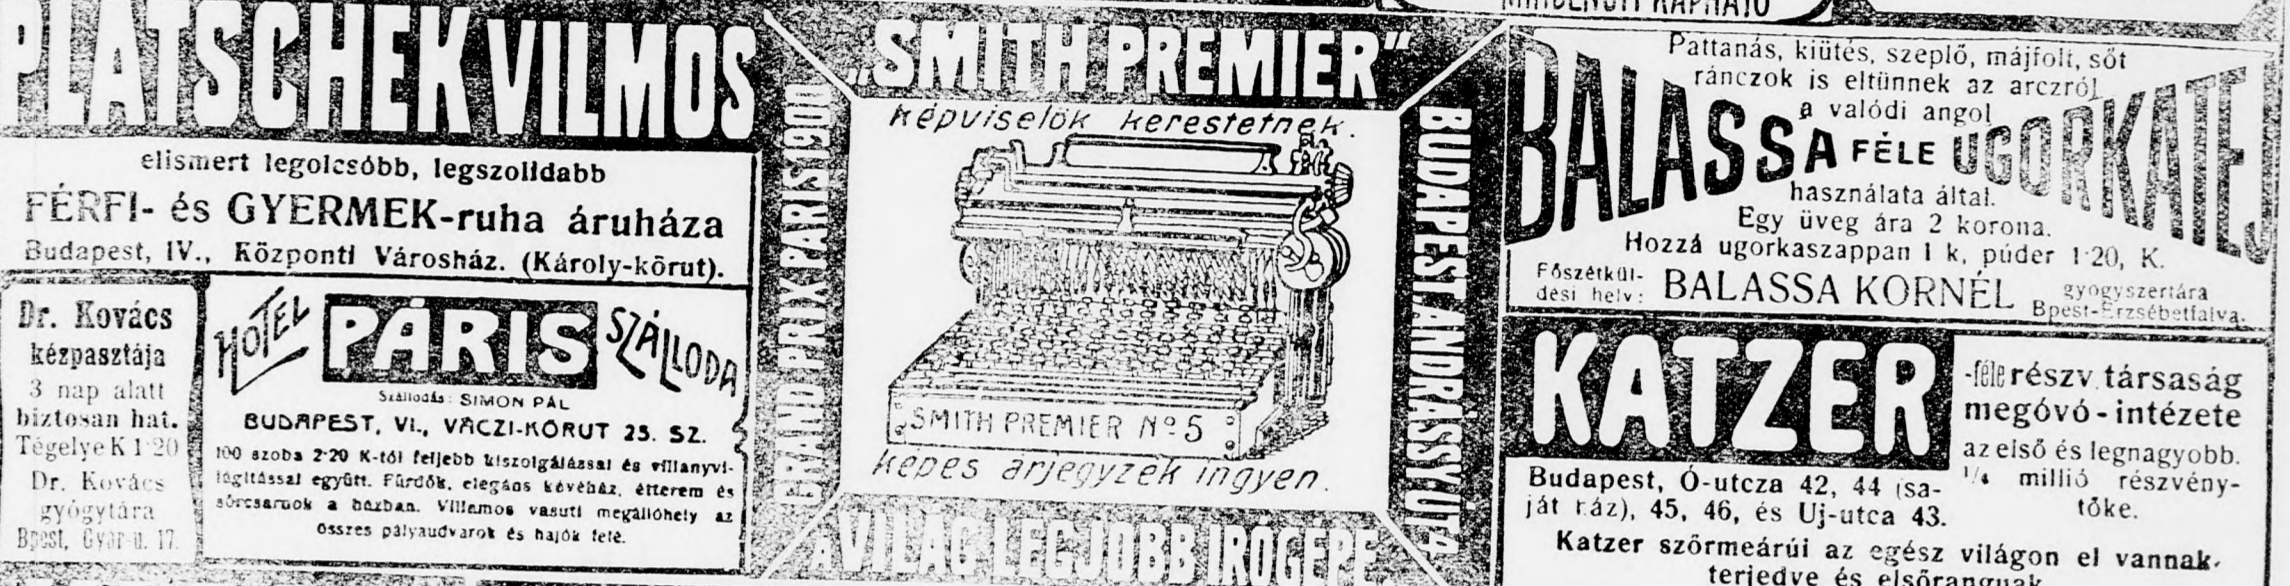 PLATSCHEK VILMOS
elismert legolcsóbb, legszolidabb
FÉRFI- és GYERMEK-ruha áruháza
Budapest, IV., Központi Városház. (Károly-körut).
Dr. Kovács
kézpasztája
3 nap alatt
biztosan hat.
Tégelye K 1·20
Dr. Kovács
gyógytára
Bpest, Gyár-u. 17.
HOTEL PÁRIS SZÁLLODA
Szállodás: SIMON PÁL
BUDAPEST, VI., VÁCZI-KÖRUT 25. SZ.
100 szoba 2·20 K-tól feljebb kiszolgálással és villanyvi-
lágitással együtt. Fürdők, elegáns kávéház, étterem és
sörcsarnok a házban. Villamos vasuti megállóhely az
összes pályaudvarok és hajók felé.
„SMITH PREMIER"
képviselők kerestetnek.
GRAND PRIX PARIS 1900
SMITH PREMIER No 5
képes árjegyzék ingyen.
A VILÁG LEGJOBB IRÓGÉPE
BUDAPEST ANDRÁSSY ÚT 4
MINDENÜTT KAPHATÓ
Pattanás, kiütés, szeplő, májfolt, sőt
ránczok is eltünnek az arczról
a valódi angol
BALASSA FÉLE UGORKATEJ
használata által.
Egy üveg ára 2 korona.
Hozzá ugorkaszappan 1 k, púder 1·20, K.
Főszétkül-
dési hely: BALASSA KORNÉL gyógyszertára
Bpest-Erzsébetfalva.
KATZER
-féle részv. társaság
megóvó-intézete
az első és legnagyobb.
1/4 millió részvény-
tőke.
Budapest, Ó-utcza 42, 44 (sa-
ját ház), 45, 46, és Uj-utca 43.
Katzer szörmeárúi az egész világon el vannak
terjedve és elsőranguak